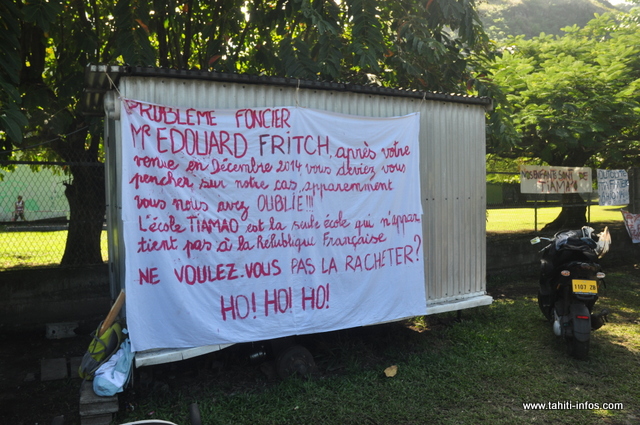 PROBLÈME FONCIER
Mr EDOUARD FRITCH, après votre
venue en Décembre 2014, vous deviez vous
pencher sur notre cas, apparemment
vous nous avez OUBLIÉ!!!
L'école TIAMAO est la seule école qui n'appar
tient pas à la République Française
NE VOULEZ-VOUS PAS LA RACHETER?
HO! HO! HO!
NOS ENFANTS SONT DE
TIAMAO
1107 ZB
www.tahiti-infos.com